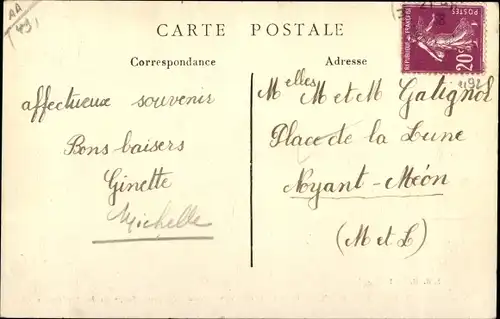 AA
49,
CARTE POSTALE
Correspondance
Adresse
POSTES
REPUBLIQUE FRANÇAISE
20c
affectueux souvenir
Bons baisers
Ginette
Michelle
Melles M et M Gatignol
Place de la Lune
Noyant-Méon
(M et L)